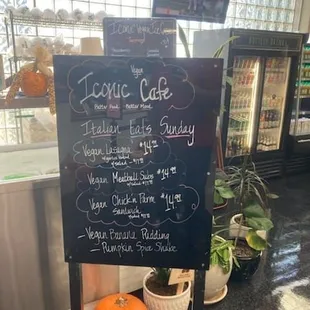 Iconic Vegan Cafe
Vegan
Iconic Cafe
Better Food. Better Mood.
Italian Eats Sunday
Vegan Lasagna $14.99
Vegan Meatball Subs $14.99
Vegan Chick'n Parm $14.99
Sandwich
-Vegan Banana Pudding
-Pumpkin Spice Shake